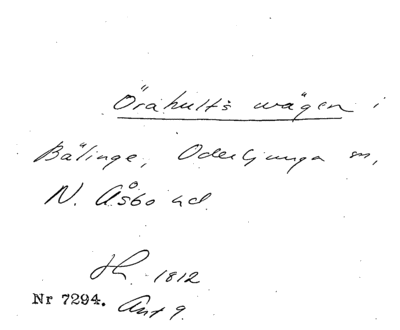 Örahults wägen i
Bälinge, Oderljunga sn,
N. Åsbo hd.
Sk. 1812
Nr 7294. Ant 9.